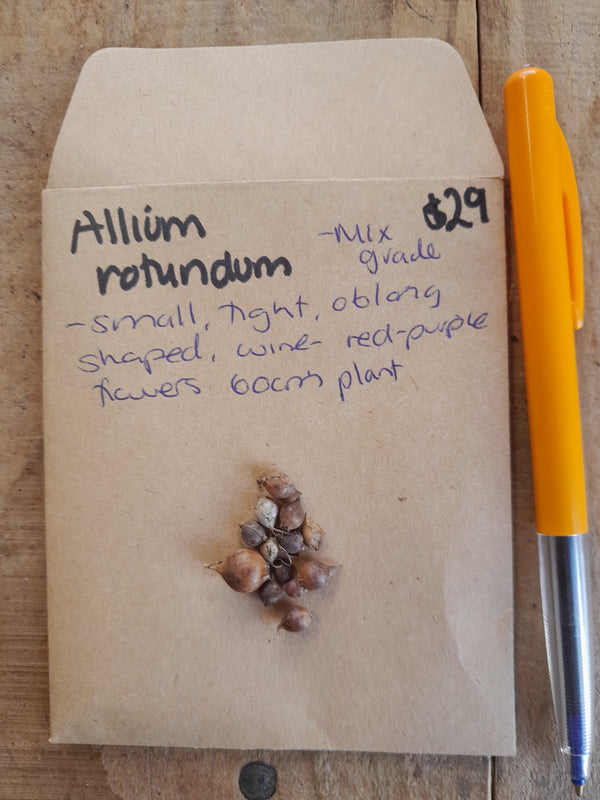 Allium
rotundum
-Mix
grade
$29
-small, tight, oblong
shaped, wine- red-purple
flowers 60cm plant